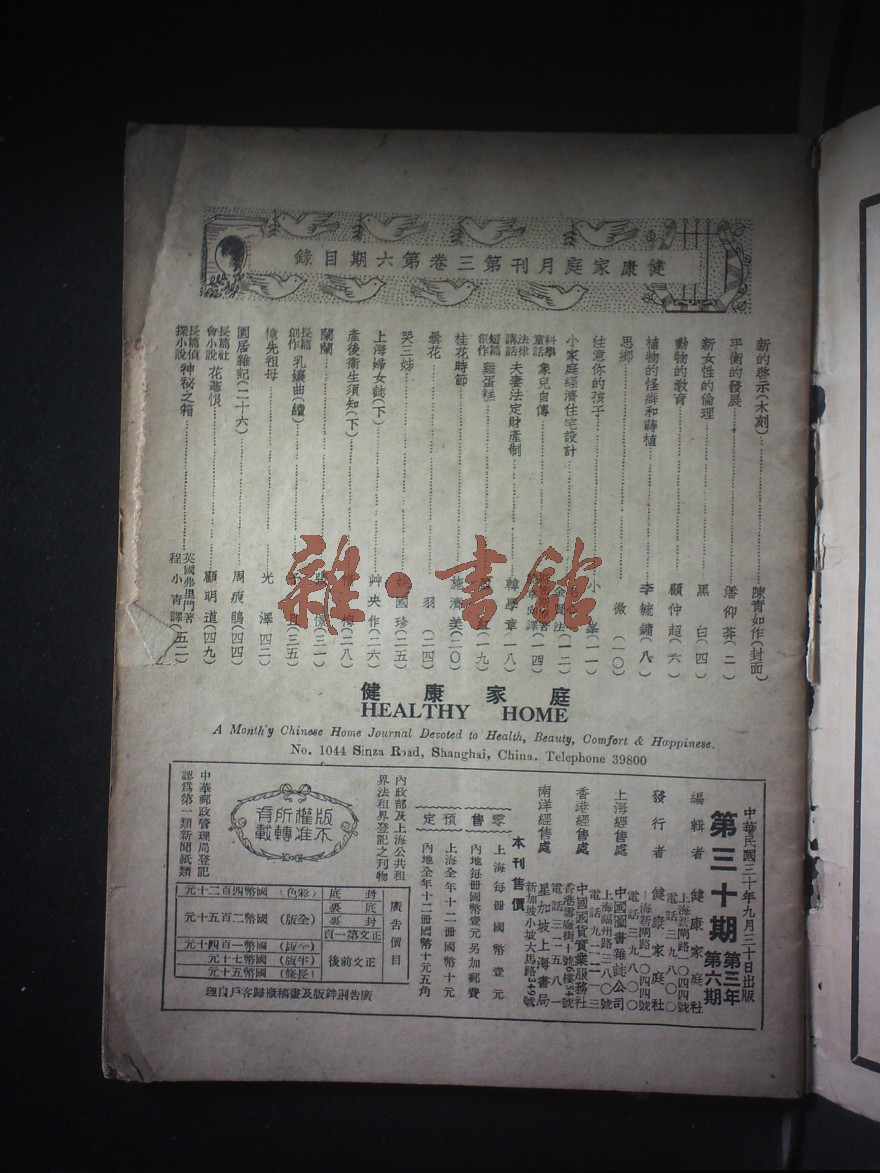 健康家庭月刊第三卷第六期目錄
新的啓示(木刻) 陳青如作(封面)
平衡的發展 潘仰莽(二)
新女性的倫理 黑白(四)
動物的教育 顧仲超(六)
植物的怪癖和蒔植 李毓鏞(八)
思鄉 微(一〇)
注意你的孩子 小(一一)
小家庭經濟住宅設計 (一二)
科學童話 象兒自傳 (一四)
法律講話 夫妻法定財產制 韓學章(一八)
短篇創作 雞蛋糕 (一九)
桂花時節 施濟美(二〇)
曇花 羽(二四)
哭三姊 國珍(二五)
上海婦女誌(下) 艸央作(二六)
產後衞生須知(下) (二八)
蘭蘭 (三一)
長篇創作 乳孃曲(續) 予且(三五)
憶先祖母 光澤(四二)
園居雜記(二十六) 周瘦鵑(四四)
長篇社會小說 花蕚恨 顧明道(四九)
長篇偵探小說 神秘之箱 英國弗里門著 程小青譯(五二)
雜·書館
健康家庭
HEALTHY HOME
A Month'y Chinese Home Journal Devoted to Health, Beauty, Comfort & Happiness.
No. 1044 Sinza Road, Shanghai, China. Telephone 39800
中華民國三十年九月三十日出版
第三十期 第三年第六期
編輯者 健康家庭社
上海新閘路一〇四四號
電話三九八〇〇
發行者 健康家庭社
上海新閘路一〇四四號
電話三九八〇〇
上海經售處 中國圖書雜誌公司
上海福州路三八〇號
電話九一一二三
香港經售處 中國國貨實業服務社
香港雪廠街十號6樓54號
電話三一二五八一
南洋經售處 星加坡上海書局
新加坡小坡大馬路349號
本刊售價
零售 上海每冊國幣壹元
內地每冊國幣壹元另加郵費
預定 上海全年十二冊國幣十元
內地全年十二冊國幣十元五角
內政部及上海公共租
界法租界登記之刊物
版權所有
不准轉載
中華郵政管理局登記
認爲第一類新聞紙類
廣告價目
封底 (彩色) 國幣四百二十元
底裏 封裏 正文第一頁 (全版) 國幣二百五十元
正文前後 (全版) 國幣一百四十元
(半版) 國幣七十元
(長條) 國幣五十元
廣告銅鋅版及畫稿概歸客戶自理